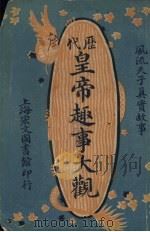 風流天子真實故事
歷代
皇帝趣事大觀
上海宋文圖書館印行